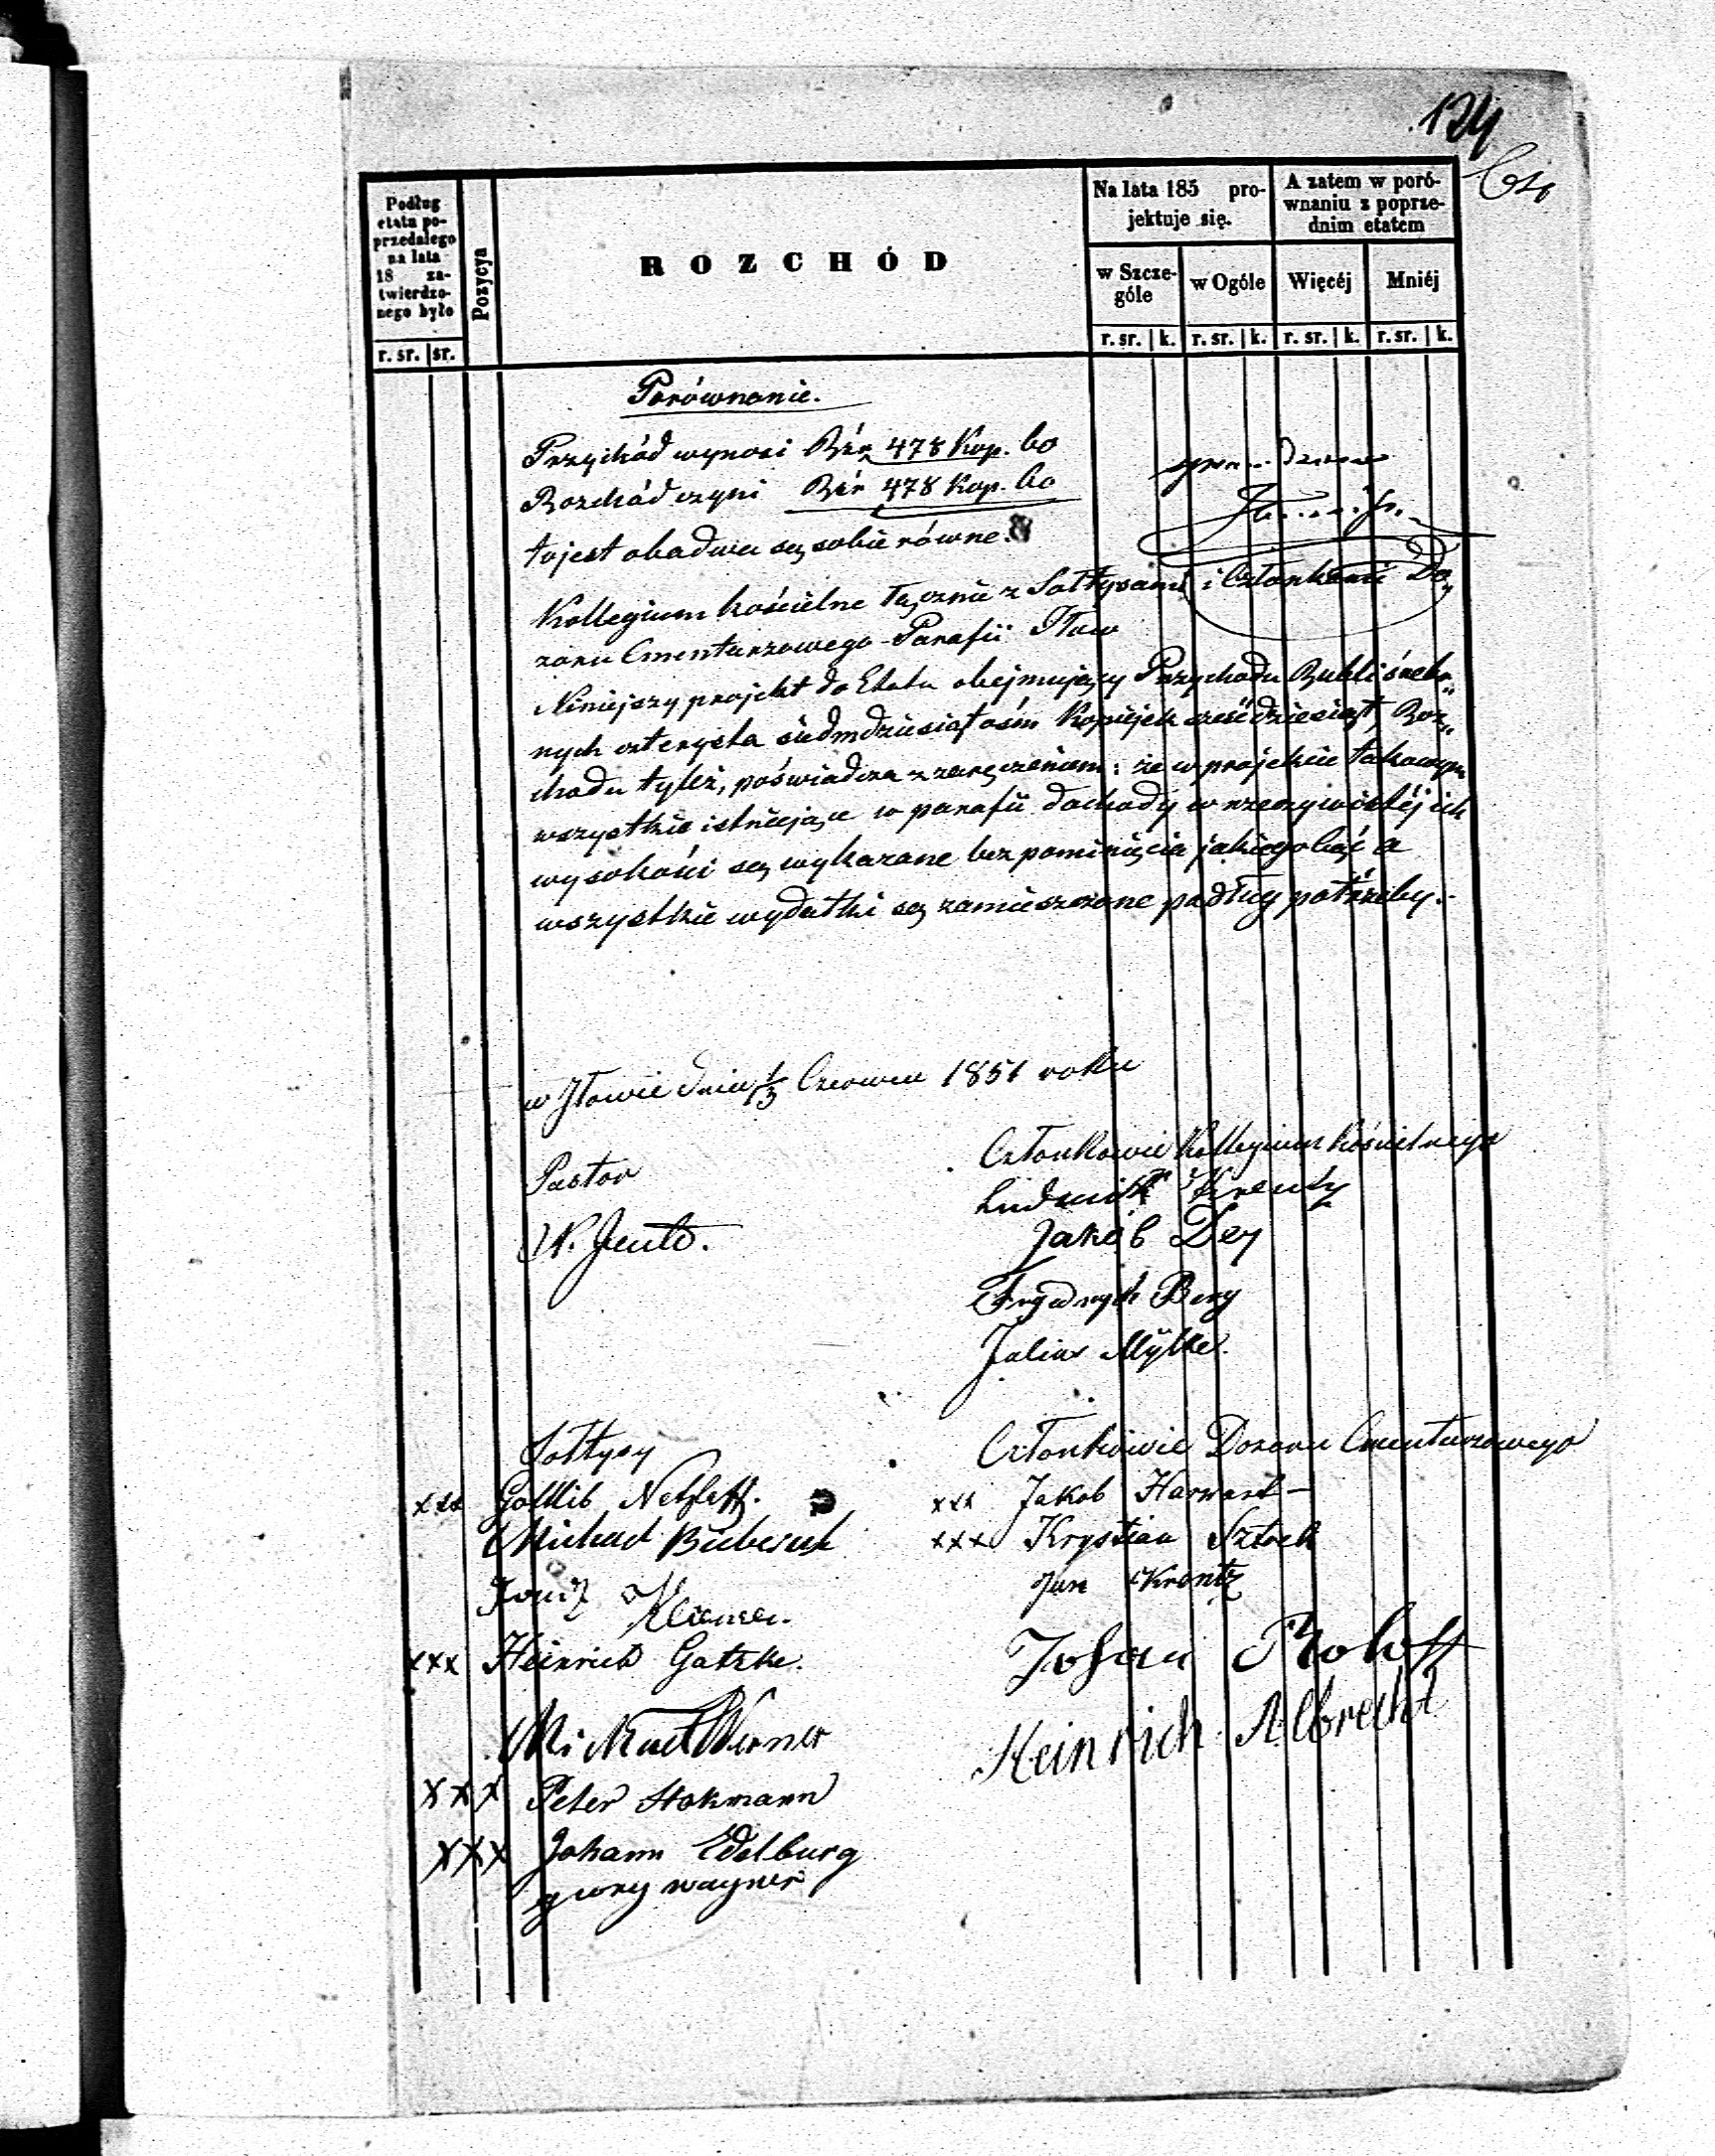 124
Podług
etatu po-
przedniego
na lata
18 za-
twierdzo-
nego było
r. sr. sr.
Pozycya
ROZCHÓD
Na lata 185 pro-
jektuje się.
w Szcze-
góle
w Ogóle
r. sr. k. r. sr. k.
A zatem w poró-
wnaniu z poprze-
dnim etatem
Więcéj
Mniéj
r. sr. k. r. sr. k.
Porównanie.
Przychód wynosi Rsr. 478 Kop. 60
Rozchód czyni Rsr 478 Kop. 60
to jest obadwa są sobie równe.
Kollegium kościelne łącznie z Sołtysami i Członkami Do„
zoru Cmentarzowego Parafii Iłow
Niniejszy projekt do Etatu obejmujący Przychodu Rubli śrebr„
nych czterysta siedmdziesiąt ośm Kopiejek sześćdziesiąt, Roz„
chodu tyleż, poświadcza z zaręczeniem: że w projekcie takowym
wszystkie istniejące w parafii dochody w rzeczywistéj ich
wysokości są wykazane bez pominięcia jakiegobąć a
wszystkie wydatki są zamieszczone podług potrzeby.
w Iłowie dnia 1/3 Czerwca 1851 roku
Pastor
Członkowie Kollegium Kościelnego
Ludwik Krentz
Jakób Dey
Frydrych Berg
Julius Mylke.
Sołtysy
xxx Gottlib
Michael
xxx Heinrich Gatzke.
Michael Werner
xxx Peter Stokmann
xxx Johann Edelburg
Członkowie Dozoru Cmentarzowego
xxx Jakob
xxx Krystian Sztrek
Jan Krentz
Johan Roloff
Heinrich Albrecht